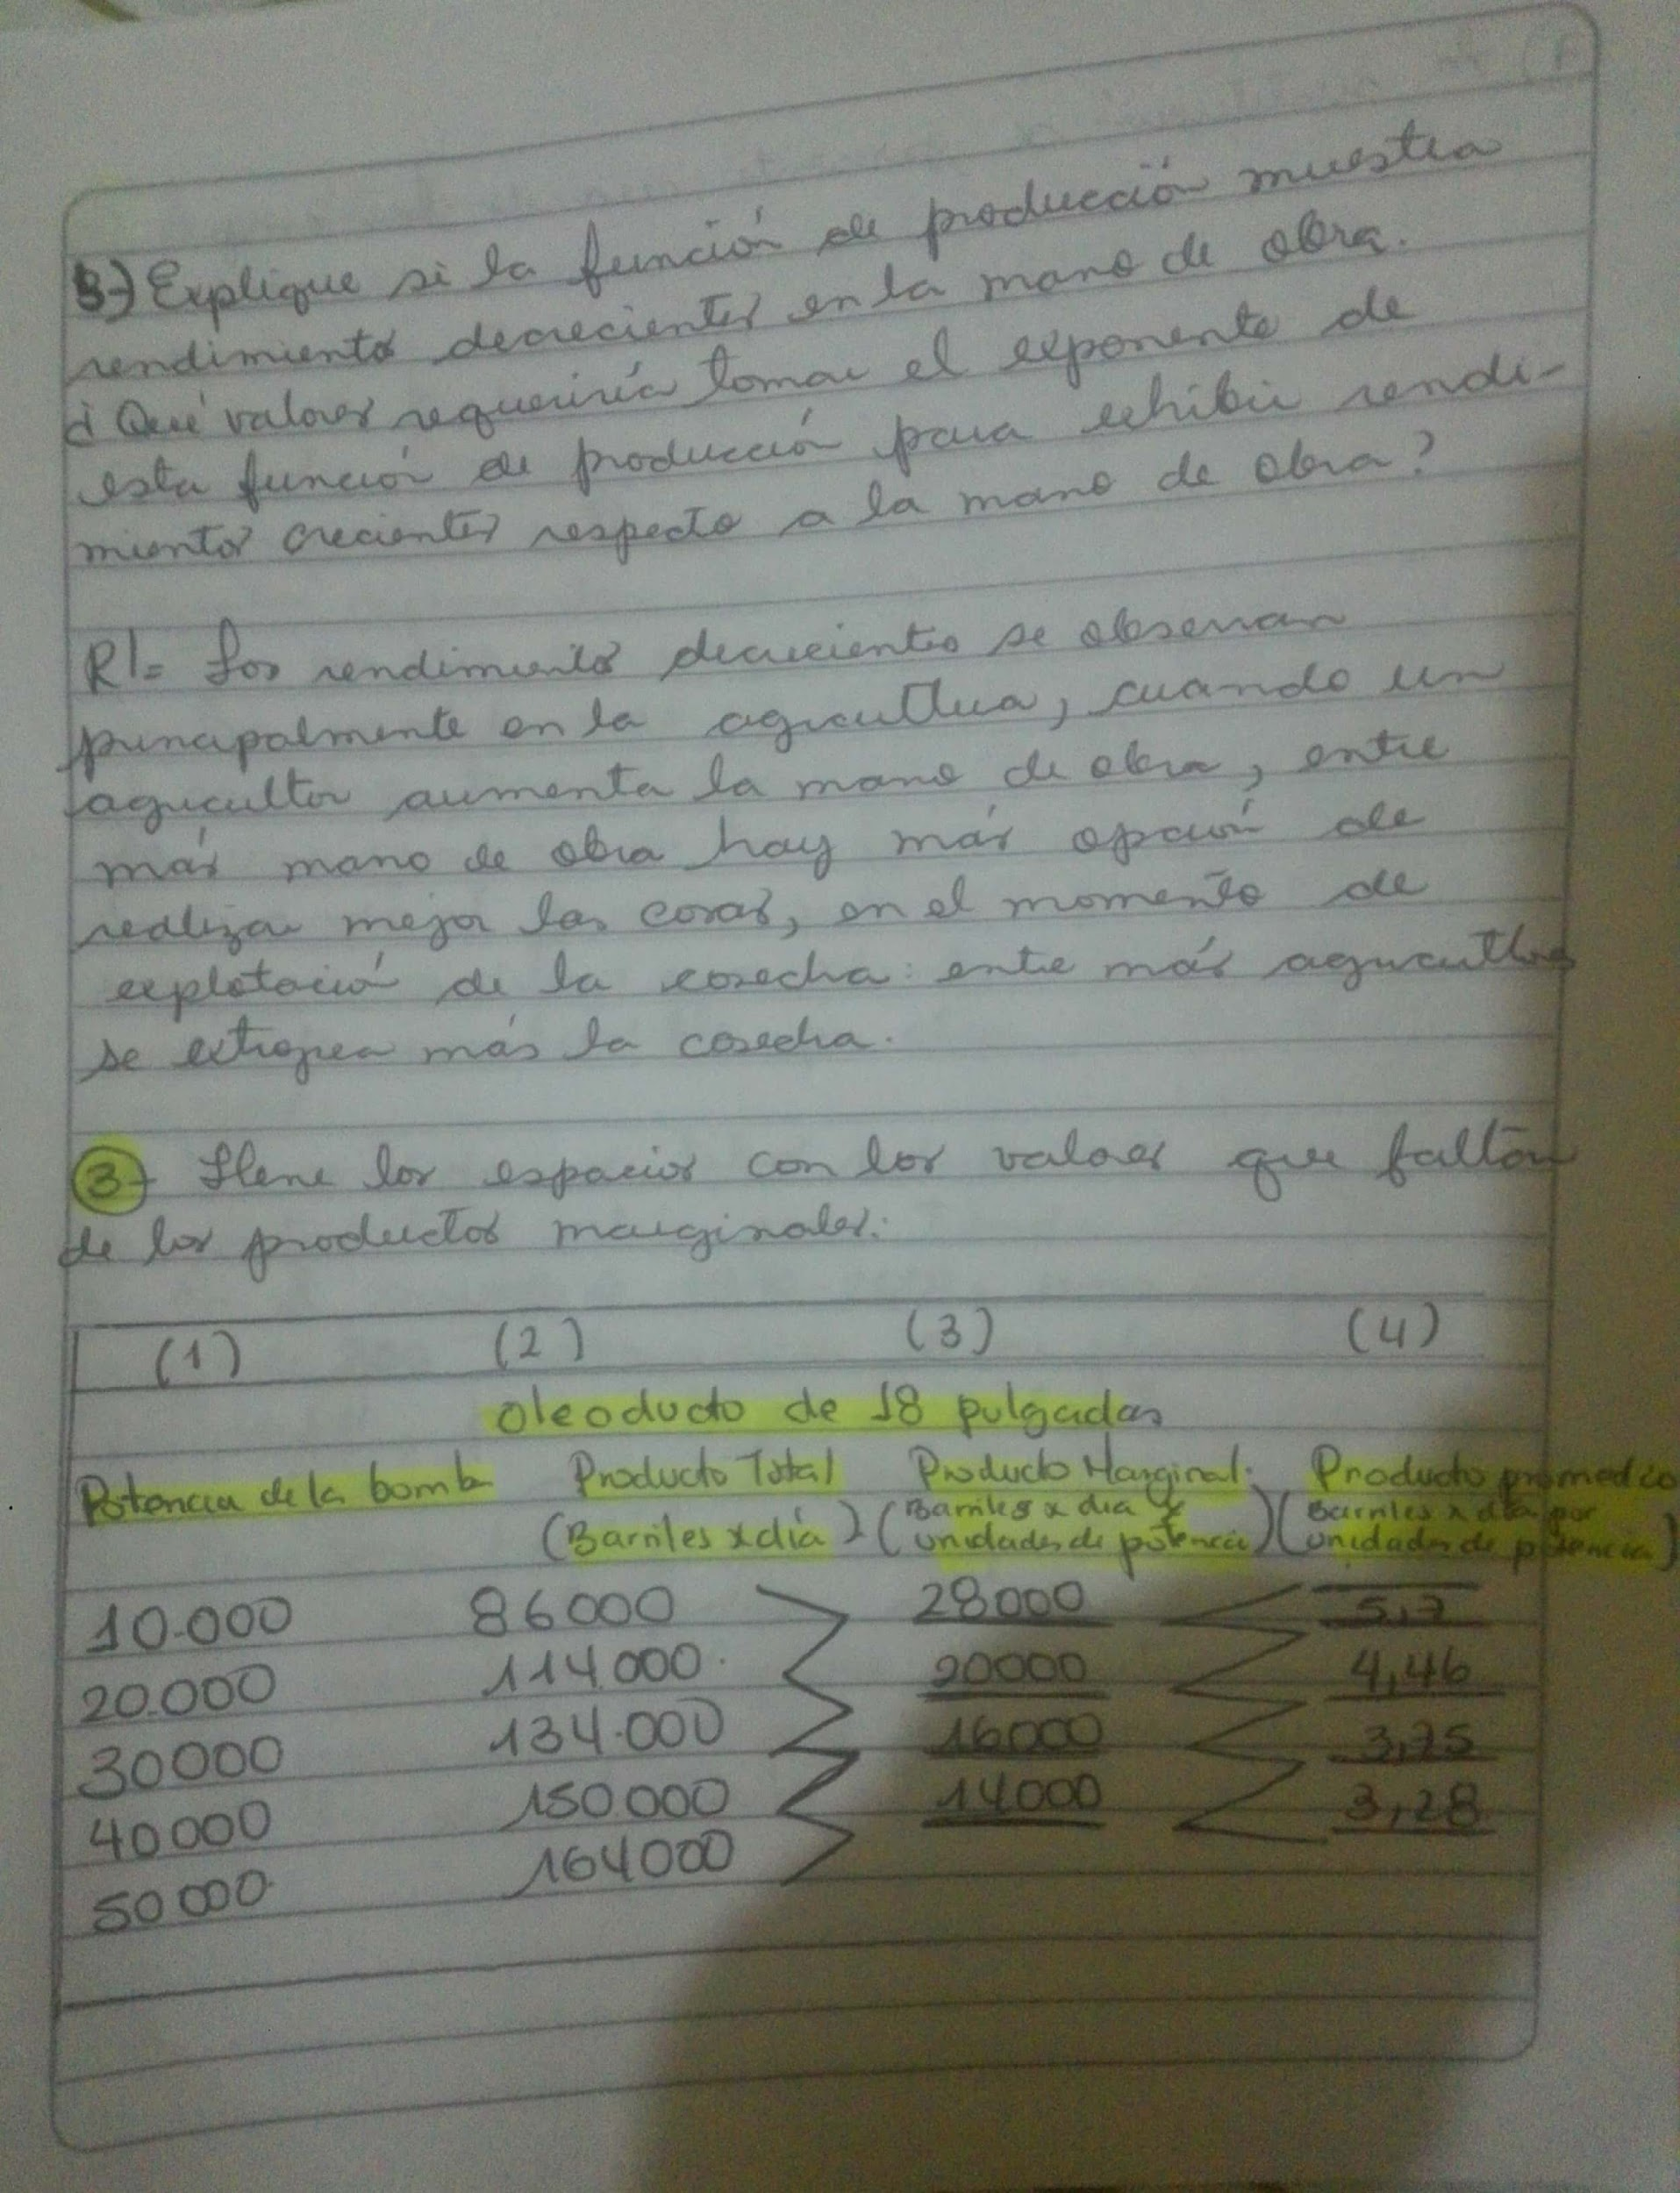 B-) Explique si la función de producción muestra
rendimientos decrecientes en la mano de obra.
¿Qué valores requeriría tomar el exponente de
esta función de producción para exhibir rendi-
mientos crecientes respecto a la mano de obra?
R/= Los rendimientos decrecientes se observan
principalmente en la agricultura, cuando un
agricultor aumenta la mano de obra, entre
más mano de obra hay más opción de
realizar mejor las cosas, en el momento de
explotación de la cosecha: entre más
se estropea más la cosecha.
3- Llene los espacios con los valores que faltan
de los productos marginales:
(1) (2) (3) (4)
Oleoducto de 18 pulgadas
Potencia de la bomba Producto Total Producto Marginal Producto promedio
(Barriles x día) (Barriles x dia x unidades de potencia) (Barriles x dia por unidades de potencia)
10.000 86000 28000 5,7
20.000 114.000 20000 4,46
30000 134.000 16000 3,75
40000 150.000 14000 3,28
50000 164000